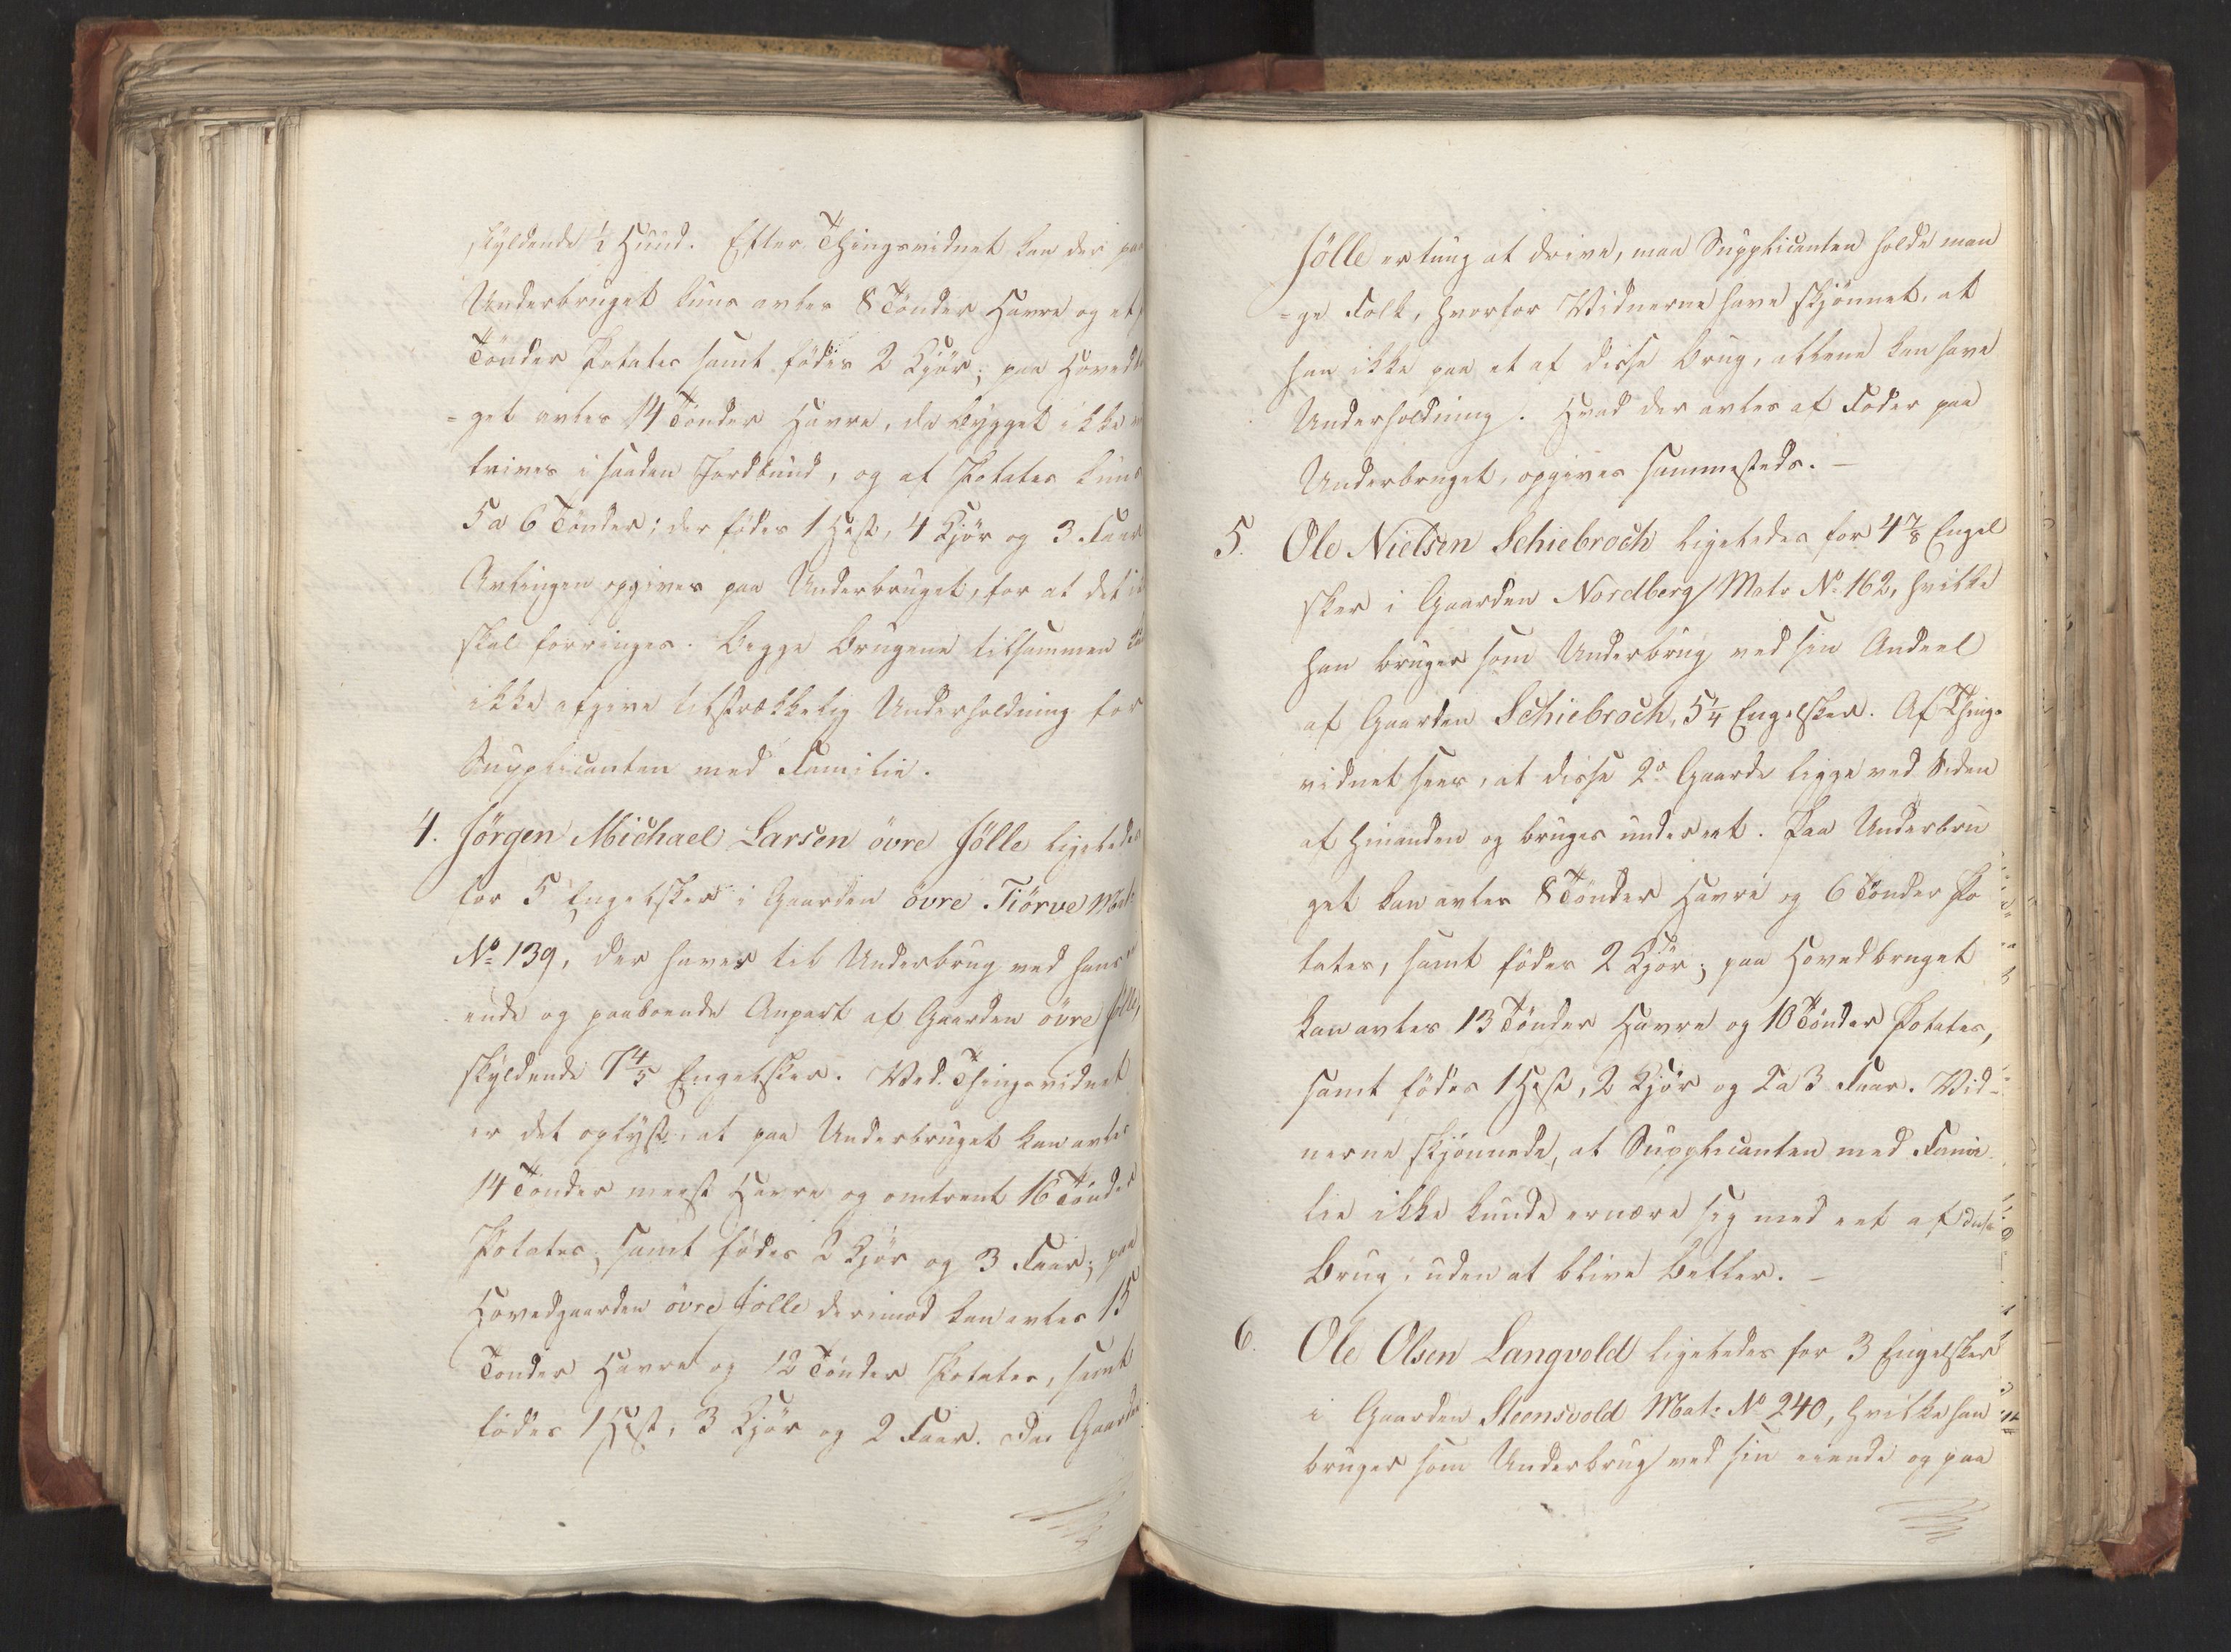 skyldende ½ Hund. Efter Thingsvidnet kan der paa
Underbruget kuns avles 8 Tönder Havre og et
Tönder Potates samt födes 2 Kjör; paa Hoved
=get avles 14 Tönder Havre, da Bygget ikke
trives i saadan Jordbund, og af Potates kuns
5 a 6 Tönder; der födes 1 Hest, 4 Kjör og 3 Faar
Avlingen opgives paa Underbruget, for at det
skal forringes. Begge Brugene tilsammen
ikke afgive tilstrækkelig Underholdning for
Supplicanten med Familie.
4. Jörgen Michael Larsen övre Jölle ligeledes
for 5 Engelsker i Gaarden övre Tiörve Mat:
No 139, der haves til Underbrug ved hans
ende og paaboende Anpart af Gaarden övre Jölle,
skyldende 7 4/5 Engelsker. Ved Thingsvidnet
er det oplyst, at paa Underbruget kan avles
14 Tönder meest Havre og omtrent 16 Tönder
Potates, samt födes 2 Kjör og 3 Faar; paa
Hovedgaarden övre Jölle derimod kan avles 15
Tönder Havre og 12 Tönder Potates, samt
födes 1 Hest, 3 Kjör og 2 Faar. Da Gaarden
Jölle er tung at drive, maa Supplicanten holde man
=ge Folk, hvorfor Vidnerne have skjönnet, at
han ikke paa et af disse Brug, allene kan have
Underholdning. Hvad der avles af Foder paa
Underbruget, opgives sammesteds. —
5. Ole Nielsen Schiebroch ligeledes for 4 7/8 Engel
sker i Gaarden Nordberg Matr No 162, hvilke
han bruger som Underbrug ved sin Andeel
af Gaarden Schiebroch, 5 1/4 Engelsker. Af Things
vidnet sees, at disse 2de Gaarde ligge ved Siden
af hinanden og bruges under eet. Paa Underbru
get kan avles 8 Tönder Havre og 6 Tönder Po
tates, samt födes 2 Kjör; paa Hovedbruget
kan avles 13 Tönder Havre og 10 Tönder Potates,
samt födes 1 Hest, 2 Kjör og 2 a 3 Faar. Vid-
nerne skjönnede, at Supplicanten med Fami
lie ikke kunde ernære sig med eet af disse
Brug, uden at blive Betler. —
6. Ole Olsen Langvold ligeledes for 3 Engelsker
i Gaarden Steensvold Mat: No 240, hvilke han
bruger som Underbrug ved sin eiende og paa